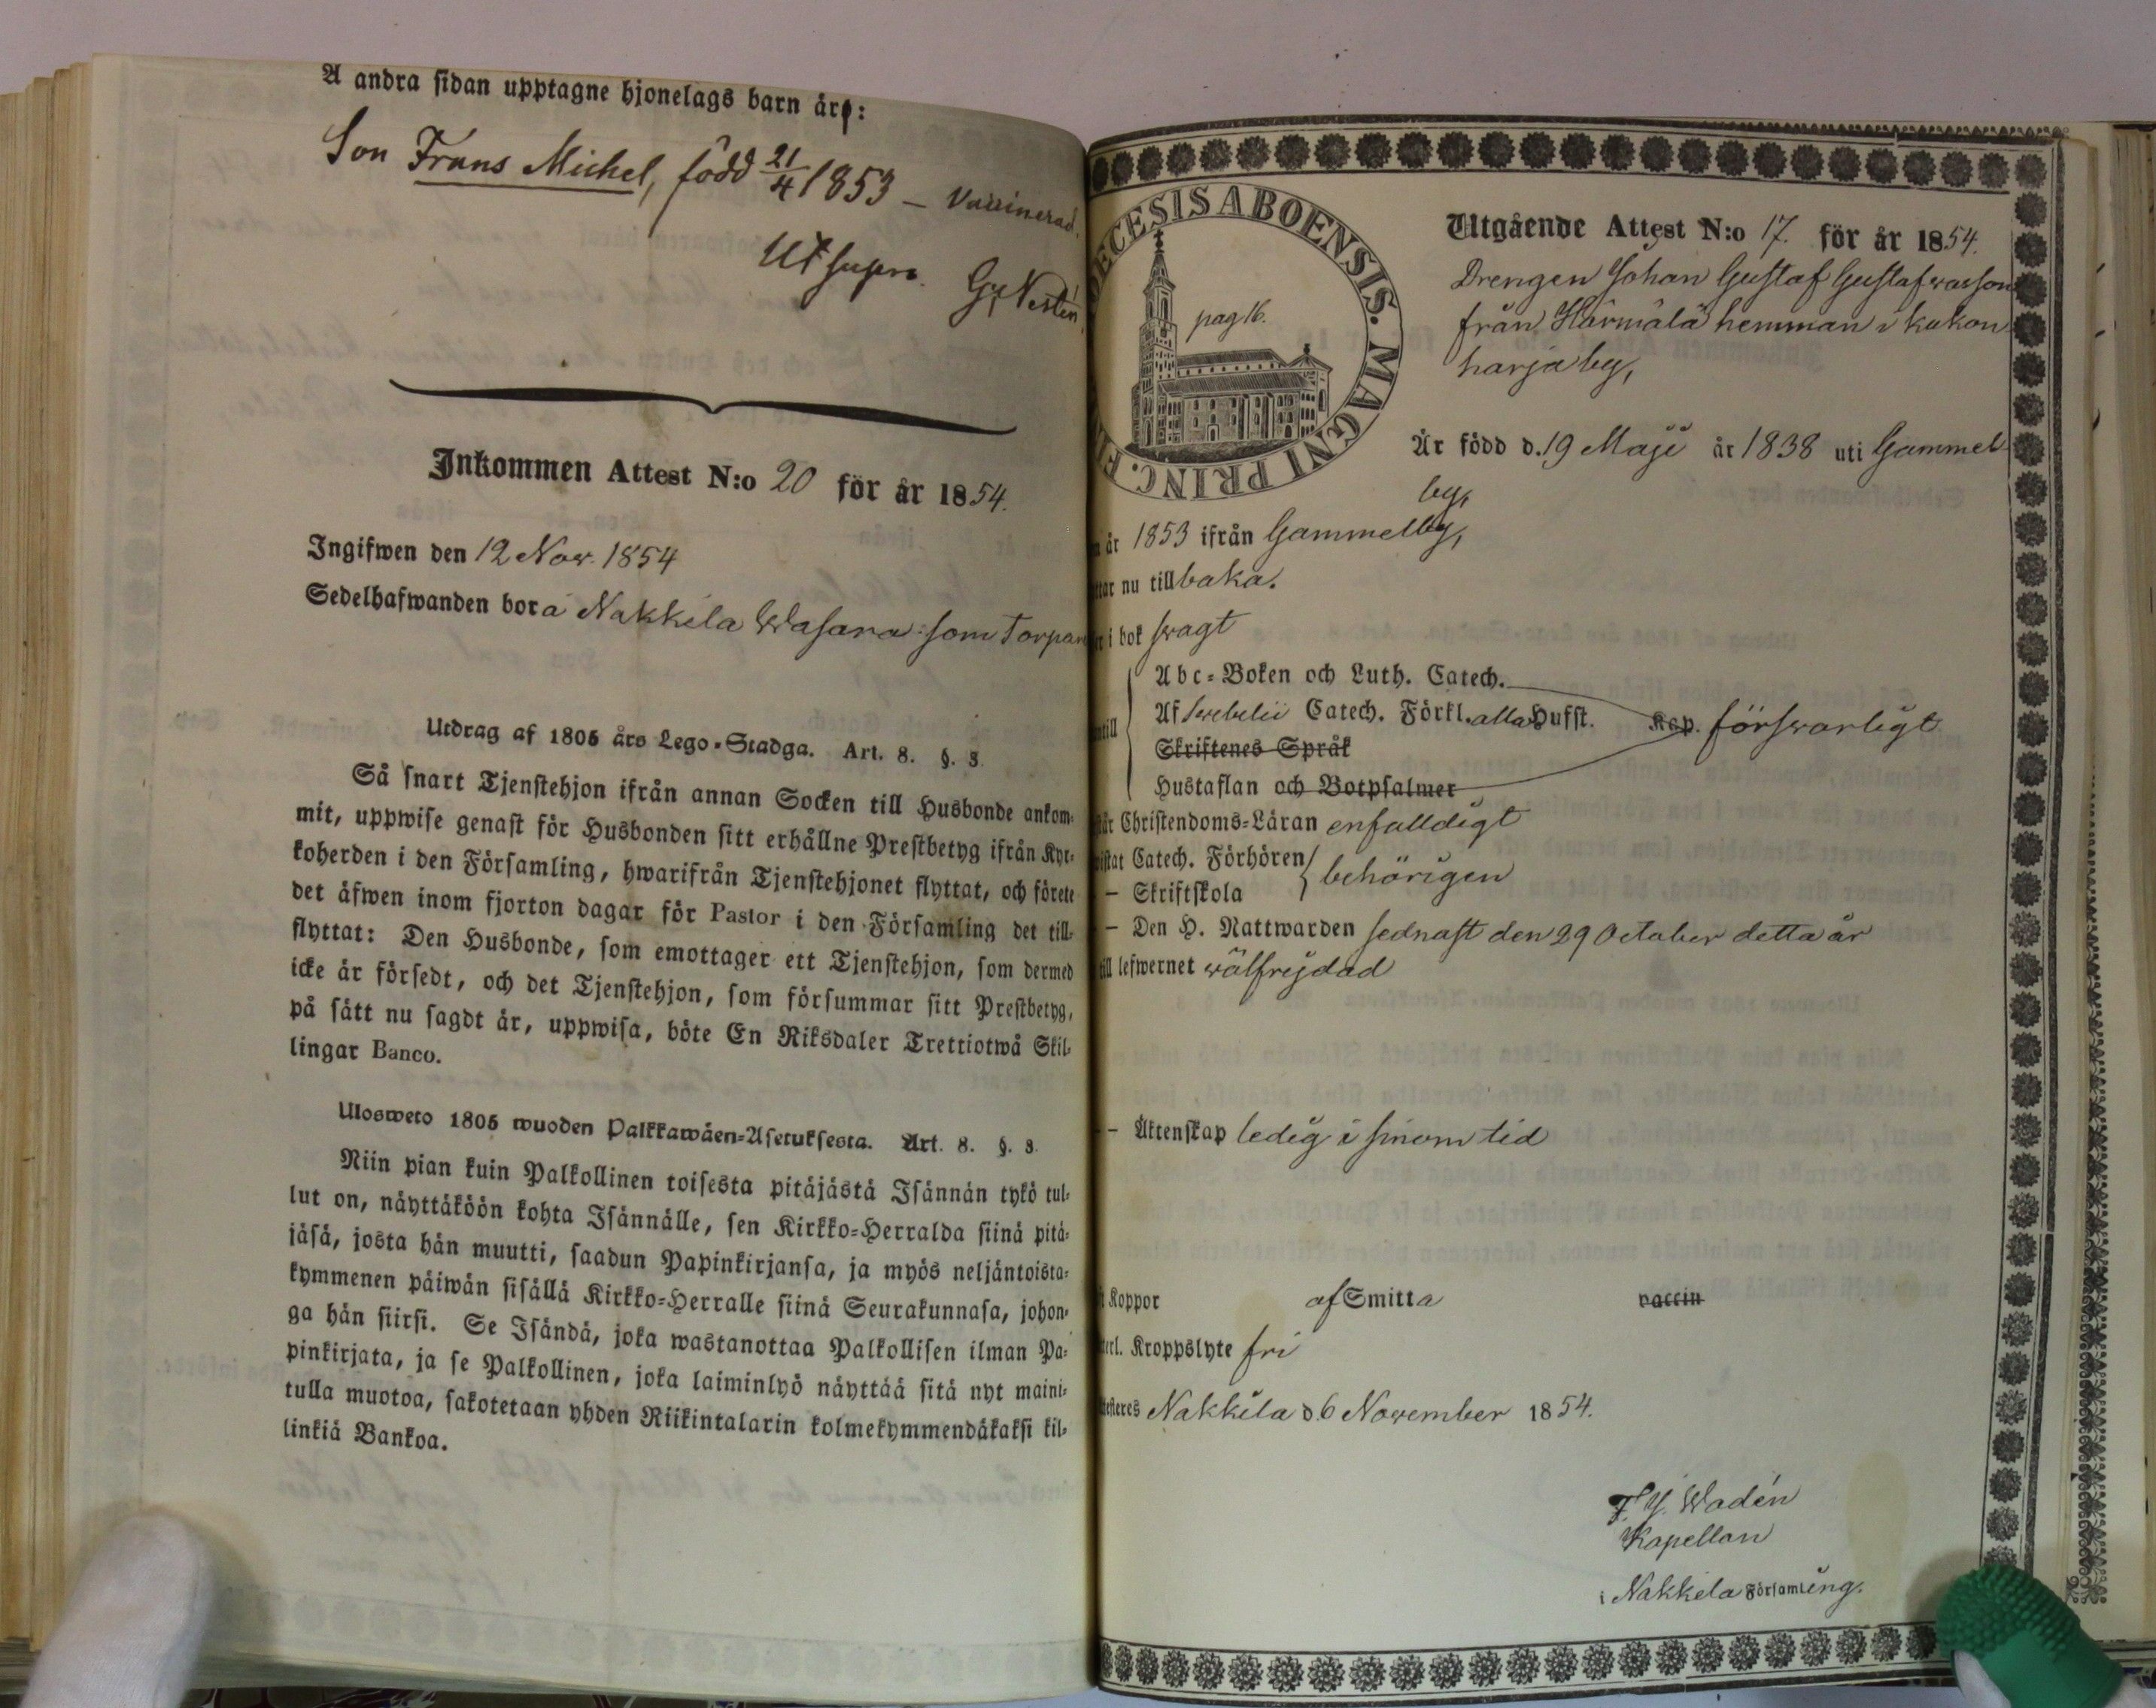 A andra sidan upptagne hjonelags barn äro:
Son Frans Michel, född 21/4 1853 – Vaccinerad.
Ut supra. G. Nestén
Inkommen Attest N:o 20 för år 1854.
Ingifwen den 12 Nov. 1854
Sedelhafwanden bor å Nakkila Wasara som Torpar
Utdrag af 1805 års Lego-Stadga. Art. 8. §. 3.
Så snart Tjenstehjon ifrån annan Socken till Husbonde ankom-
mit, uppwise genast för Husbonden sitt erhållne Prestbetyg ifrån Kyr-
koherden i den Församling, hwarifrån Tjenstehjonet flyttat, och förete
det äfwen inom fjorton dagar för Pastor i den Församling det till-
flyttat: Den Husbonde, som emottager ett Tjenstehjon, som dermed
icke är försedt, och det Tjenstehjon, som försummar sitt Prestbetyg,
på sätt nu sagdt är, uppwisa, böte En Riksdaler Trettiotwå Skil-
lingar Banco.
Ulosweto 1805 wuoden Palkkawäen-Asetuksesta. Art. 8. §. 3.
Niin pian kuin Palkollinen toisesta pitäjästä Isännän tykö tul-
lut on, näyttäköön kohta Isännälle, sen Kirkko-Herralda siinä pitä-
jäsä, josta hän muutti, saadun Papinkirjansa, ja myös neljäntoista-
kymmenen päiwän sisällä Kirkko-Herralle siinä Seurakunnasa, johon-
ga hän siirsi. Se Isändä, joka wastanottaa Palkollisen ilman Pa-
pinkirjata, ja se Palkollinen, joka laiminlyö näyttää sitä nyt maini-
tulla muotoa, sakotetaan yhden Riikintalarin kolmekymmendäkaksi kil-
linkiä Bankoa.
ECESIS ABOENSIS. MAGNI PRINC. FI
pag 16.
Utgående Attest N:o 17. för år 1854.
Drengen Johan Gustaf Gustafsson
från Härmälä hemman i Kukon
harja by,
Är född d. 19 Maji år 1838 uti Gammel
by,
år 1853 ifrån Gammelby,
ttar nu tillbaka.
i bok swagt
Abc-Boken och Luth. Catech.
Af Swebelii Catech. Förkl. alla Hufst. Kap. förswarligt
Skriftenes Språk
Hustaflan och Botpsalmer
Christendoms-Läran enfalldigt
istat Catech. Förhören behörigen
– Skriftskola
– Den H. Nattwarden sednast den 29 October detta år
till lefwernet wälfrejdad
– Äktenskap ledig i sinom tid
Koppor af Smitta vaccin
terl. Kroppslyte fri
testeres Nakkila d. 6 November 1854.
F. J. Wadén
Kapellan
i Nakkila Församling.